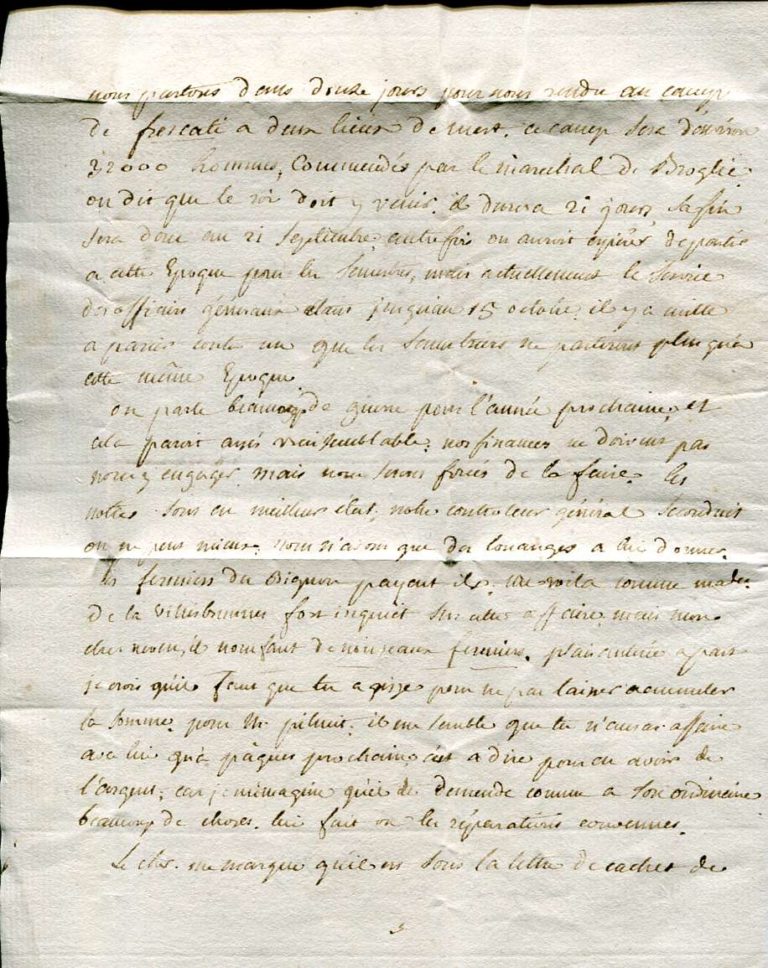 nous partons dans douze jours pour nous rendre au camp
de frescati a deux lieux de metz. ce camp sera d'environ
32000 hommes, Commendés par le marechal de Broglie.
on dit que le roi doit y venir. il durera 21 jours, sa fin
sera donc au 21 Septembre, autrefois on auroit espérer de partir
a cette Epoque pour les Semestres, mais actuellement le service
des officiers généraux étant jusqu'au 15 octobre, il y a mille
a parier contre un que les Semestriers ne partiront plus qu'a
cette même Epoque.
on parle beaucoup de guerre pour l'année prochaine, et
cela paroit assés vraisemblable; nos finances ne doivent pas
nous y engager. mais nous serons forcés de la faire. les
notres sons en meilleur état, notre controleur général se conduit
on ne peut mieux, nous n'avons que des louanges a lui donner.
les fermiers du Bignon payent ils. me voila comme made.
de la fort inquiet sur cette affaire. mais mon
cher neveu, il nous faut de nouveaux fermiers. a part
je crois qu'il faut que tu agisse pour ne pas laisser accumuler
la somme. pour Mr. il me semble que tu n'auras affaire
a lui qu'a pâques prochain c'est a dire pour en avoir de
l'argent; car je m'imagine qu'il demende comme a son ordinaire
beaucoup de choses. lui fait on les réparations convenues.
Le cher. me marque qu'il est sous la lettre de cachet de